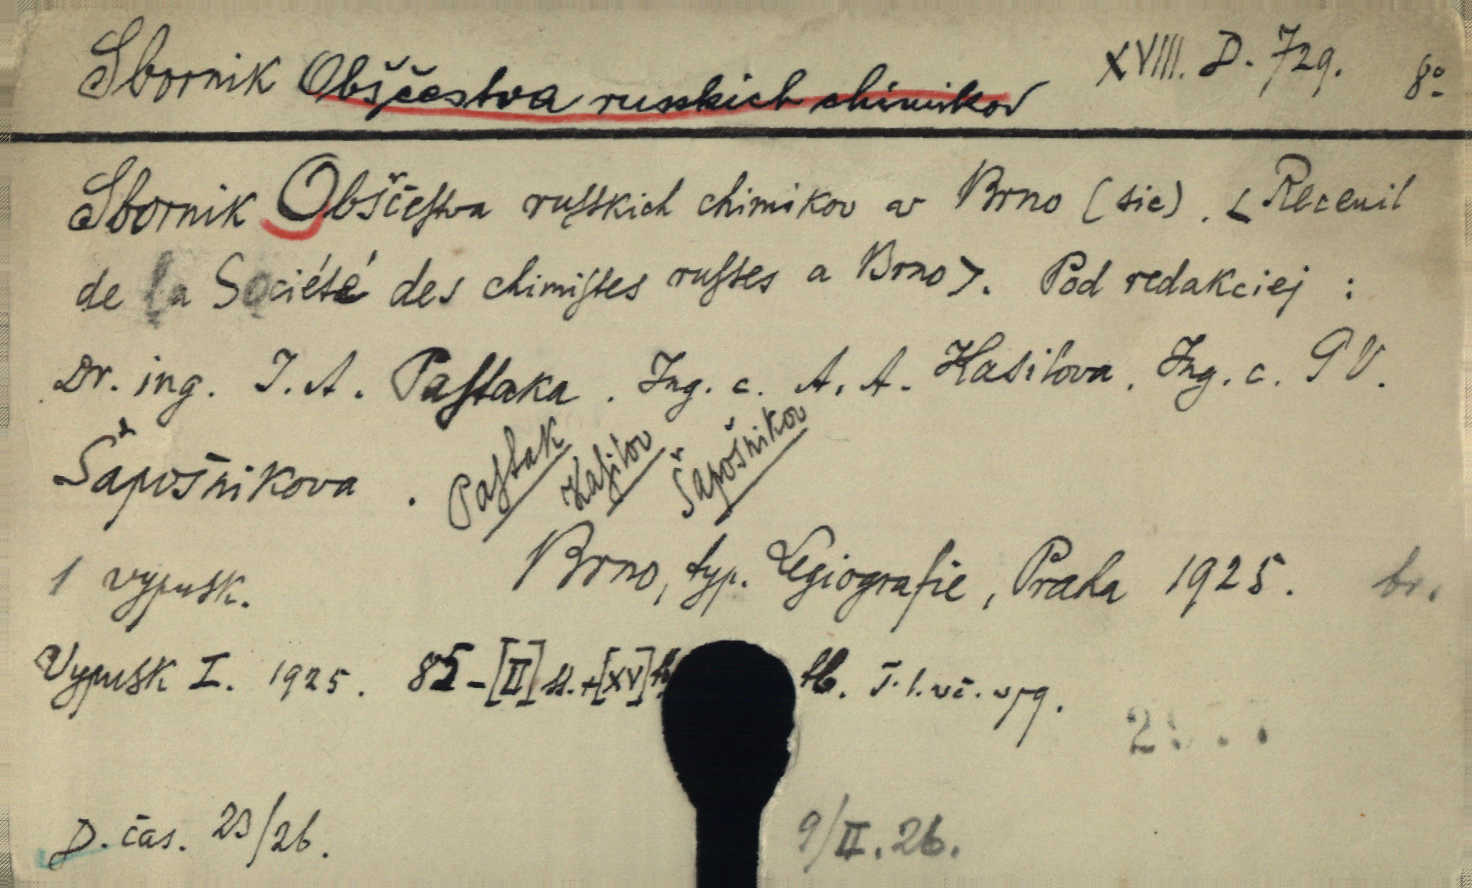 Sbornik Obščestva russkich chimikov XVIII. D. 729. 8°
Sbornik Obščestva russkich chimikov w Brno (sic). <Recenil
de la Société des chimistes russes a Brno>. Pod redakciej :
Dr. ing. I. A. Pastaka. Ing. c. A. A. Hasilova. Ing. c. P V.
Šapošnikova.
Pastak
Hasilov
Šapošnikov
1 vypusk. Brno, typ. Legiografie, Praha 1925. br.
Vypusk I. 1925. 85-[II] st.+[XV]
D. čas. 23/26. 9/II.26.